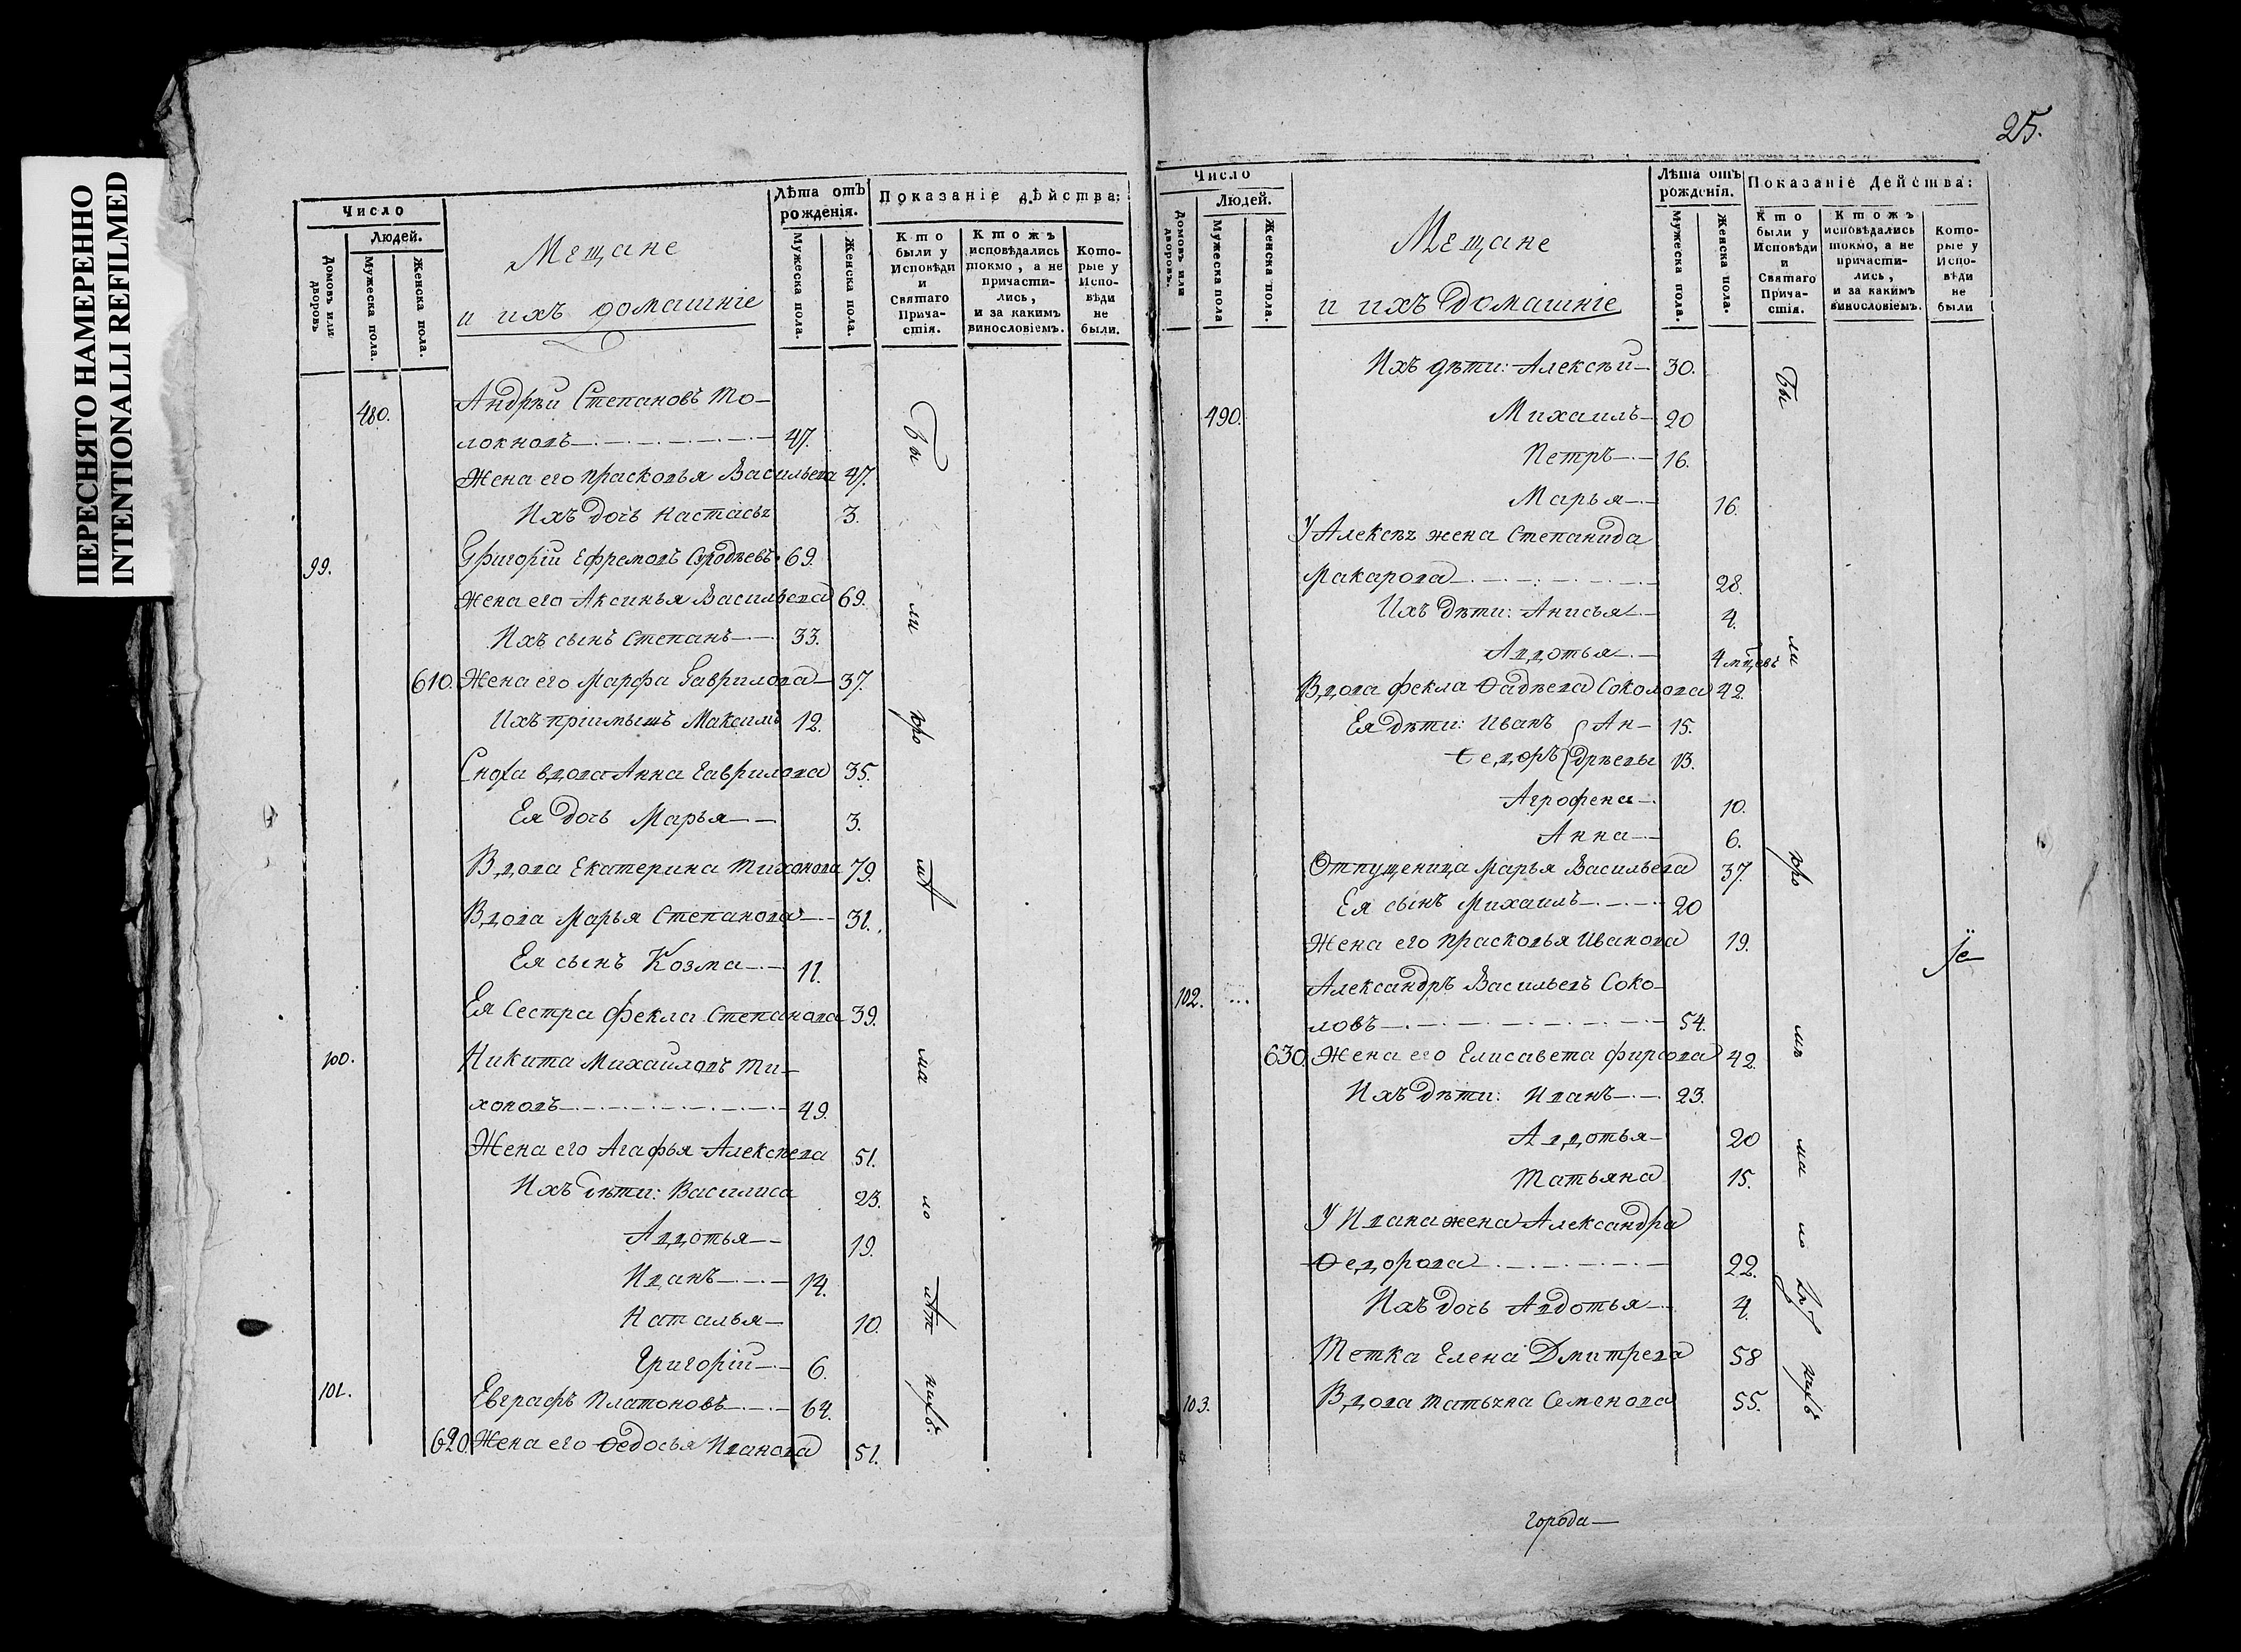 ПЕРЕСНЯТО НАМЕРЕННО
INTENTIONALLI REFILMED
Число
Людей.
Домовъ или дворовъ
Мужеска пола.
Женска пола.
Мещане
и ихъ домашніе
Лѣта отъ рожденія.
Мужеска пола.
Женска пола.
Показаніе дѣйства:
Кто были у Исповѣди и Святаго Причастія.
Ктожъ исповѣдались токмо, а не причастились, и за какимъ винословіемъ.
Которые у Исповѣди не были.
480. Андрѣй Степановъ То-
локновъ 47.
Жена его Прасковья Васильева 47.
Ихъ дочь Настасья 3.
99. Григорій Ефремовъ 69.
Жена его Аксинья Васильева 69.
Ихъ сынъ Степанъ 33.
610. Жена его Марфа Гаврилова 37.
Ихъ пріимышъ Максимъ 12.
Сноха вдова Анна Гаврилова 35.
Ея дочь Марья 3.
Вдова Екатерина Тихонова 79.
Вдова Марья Степанова 31.
Ея сынъ Козма 11.
Ея сестра Фекла Степанова 39.
100. Никита Михайловъ Ти-
хоновъ 49.
Жена его Агафья Алексѣева 51.
Ихъ дѣти: Василиса 23.
Авдотья 19.
Иванъ 14.
Наталья 10.
Григорій 6.
101. Евграфъ Платоновъ 64.
620. Жена его Ѳедосья Иванова 51.
Бы
ли
ма
ло
нихъ.
25.
Число
Людей.
Домовъ или дворовъ.
Мужеска пола
Женска пола.
Мещане
и ихъ домашніе
Лѣта отъ рожденія.
Мужеска пола.
Женска пола.
Показаніе Действа:
Кто были у Исповѣди и Святаго Причастія.
Ктожъ исповѣдались токмо, а не причастились, и за какимъ винословіемъ.
Которые у Исповѣди не были
Ихъ дѣти: Алексѣй 30.
490. Михаилъ 20
Петръ 16.
Марья 16.
У Алексѣя жена Степанида
Макарова 28.
Ихъ дѣти: Анисья 4.
Авдотья 4 мцовъ
Вдова Фекла Ѳадѣева Соколова 42.
Ея дѣти: Иванъ Ан- 15.
Ѳедоръ дрѣевы 13.
Агрофена 10.
Анна 6.
Отпущеница Марья Васильева 37.
Ея сынъ Михаилъ 20
Жена его Прасковья Иванова 19.
102. Александръ Васильевъ Соко-
ловъ 54.
630. Жена его Елисавета Фирсова 42.
Ихъ дѣти: Иванъ 23.
Авдотья 20
Татьяна 15.
У Ивана жена Александра
Ѳедорова 22.
Ихъ дочь Авдотья 4.
Тетка Елена Дмитрева 58
103. Вдова Татьяна Семенова 55.
Бы
ли
ма
ло
города